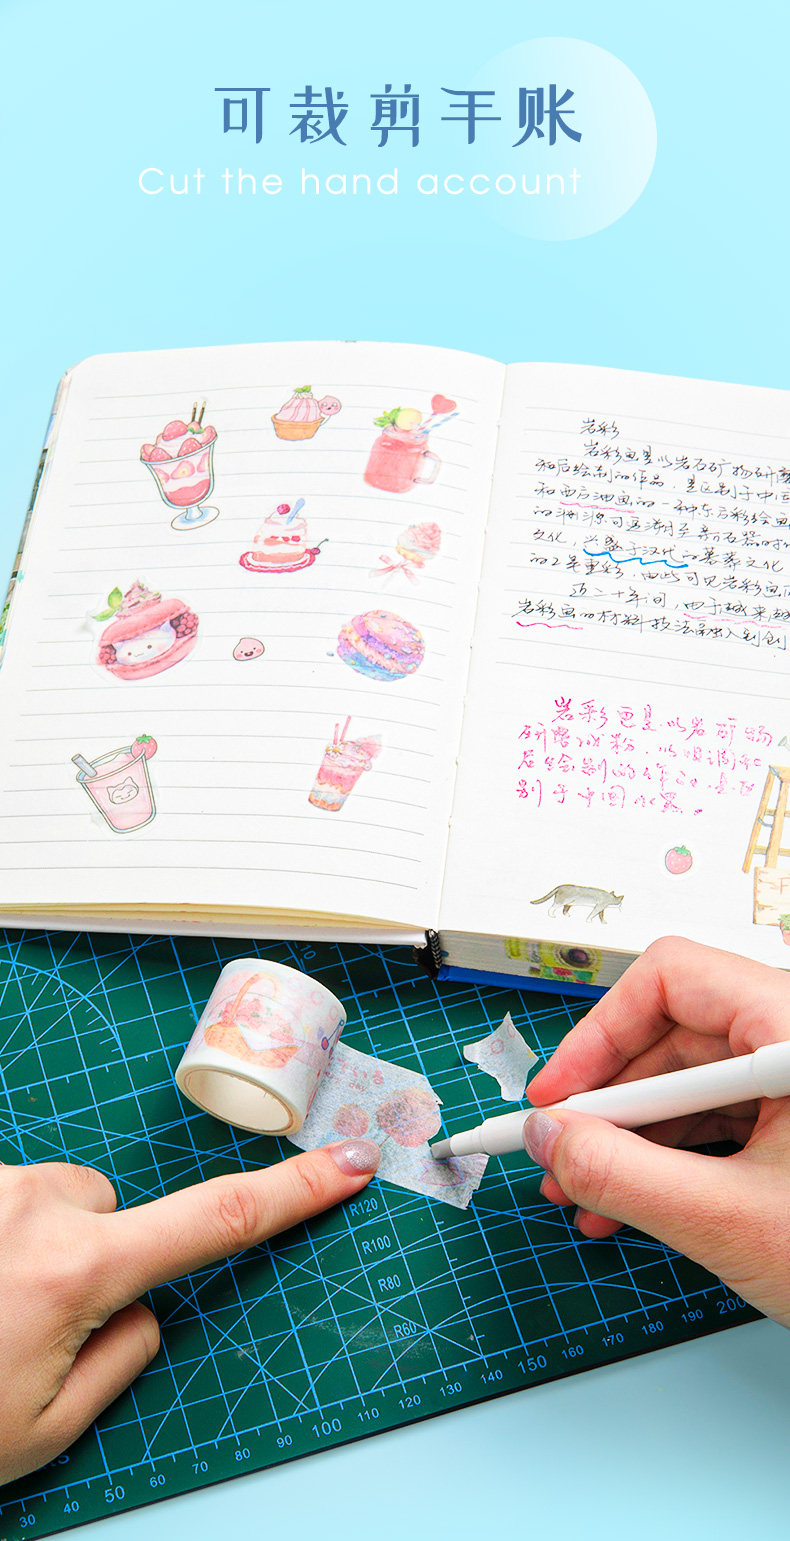 可裁剪手账
Cut the hand account
岩彩
岩彩画是以岩石矿物研磨
和后绘制的作品，是区别于中国
和西方油画的一种东方彩绘画
的渊源可追溯至新石器时代
文化，兴盛于汉代的墓葬文化
的工笔重彩，由此可见岩彩画
近二十年间，由于越来越
岩彩画的材料技法融入到创
岩彩画是以岩矿物
研磨成粉，以胶调和
后绘制的作品，是区
别于中国水墨。
R120
R100
R80
R60
30
50
60
70
80
90
100
110
120
130
140
150
160
170
180
190
200